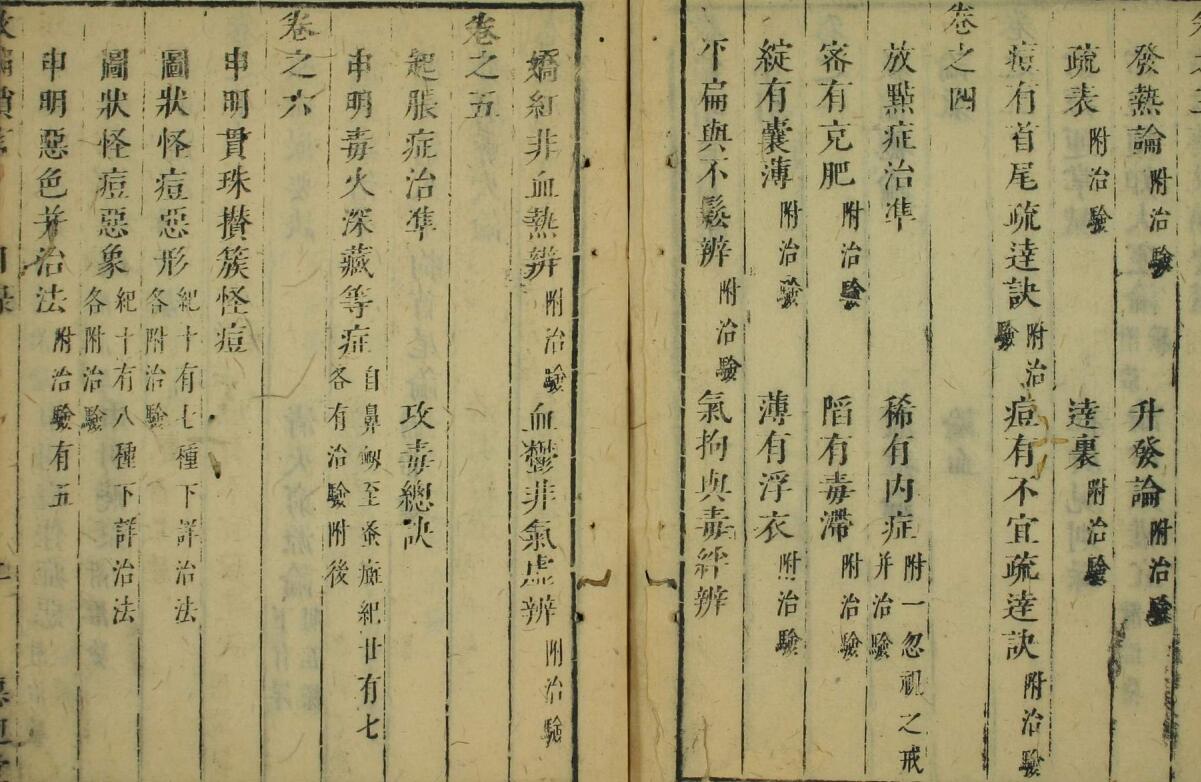 發熱論附治驗　升發論附治驗
疏表附治驗　達裏附治驗
痘有首尾疏達訣附治驗　痘有不宜疏達訣附治驗
卷之四
放點症治準　稀有内症附一忽視之戒并治驗
密有克肥附治驗　陷有毒滯附治驗
綻有囊薄附治驗　薄有浮衣附治驗
平扁與不鬆辨附治驗　氣拘與毒絆辨
嬌紅非血熱辨附治驗　血鬱非氣虛辨附治驗
卷之五
起脹症治準　攻毒總訣
申明毒火深藏等症自鼻衂至蚤㾴紀廿有七各有治驗附後
卷之六
申明貫珠攅簇怪痘
圖狀怪痘惡形紀十有七種下詳治法各附治驗
圖狀怪痘惡象紀十有八種下詳治法各附治驗
申明惡色并治法附治驗有五